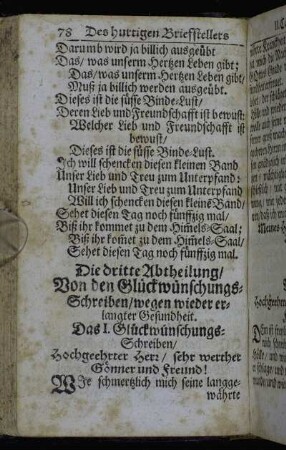 78 Des hurtigen Briefstellers
Darumb wird ja billich ausgeübt
Das/ was unserm Hertzen Leben gibt;
Das/was unserm Hertzen Leben gibt/
Muß ja billich werden ausgeübt.
Dieses ist die süsse Binde-Lust/
Deren Lieb und Freundschafft ist bewust:
Welcher Lieb und Freundschafft ist
bewust/
Dieses ist die süsse Binde-Lust.
Ich will schencken diesen kleinen Band
Unser Lieb und Treu zum Unterpfand:
Unser Lieb und Treu zum Unterpfand
Will ich schencken diesen kleinē Band/
Sehet diesen Tag noch fünffzig mal/
Biß ihr kommet zu dem Him̄els-Saal;
Biß ihr kom̄et zu dem Him̄els-Saal/
Sehet diesen Tag noch fünffzig mal.
Die dritte Abtheilung/
Von den Glückwünschungs-
Schreiben/wegen wieder er-
langter Gesundheit.
Das I. Glückwünschungs-
Schreiben/
Hochgeehrter Herr/ sehr werther
Gönner und Freund!
WJe schmertzlich mich seine langge-
währte